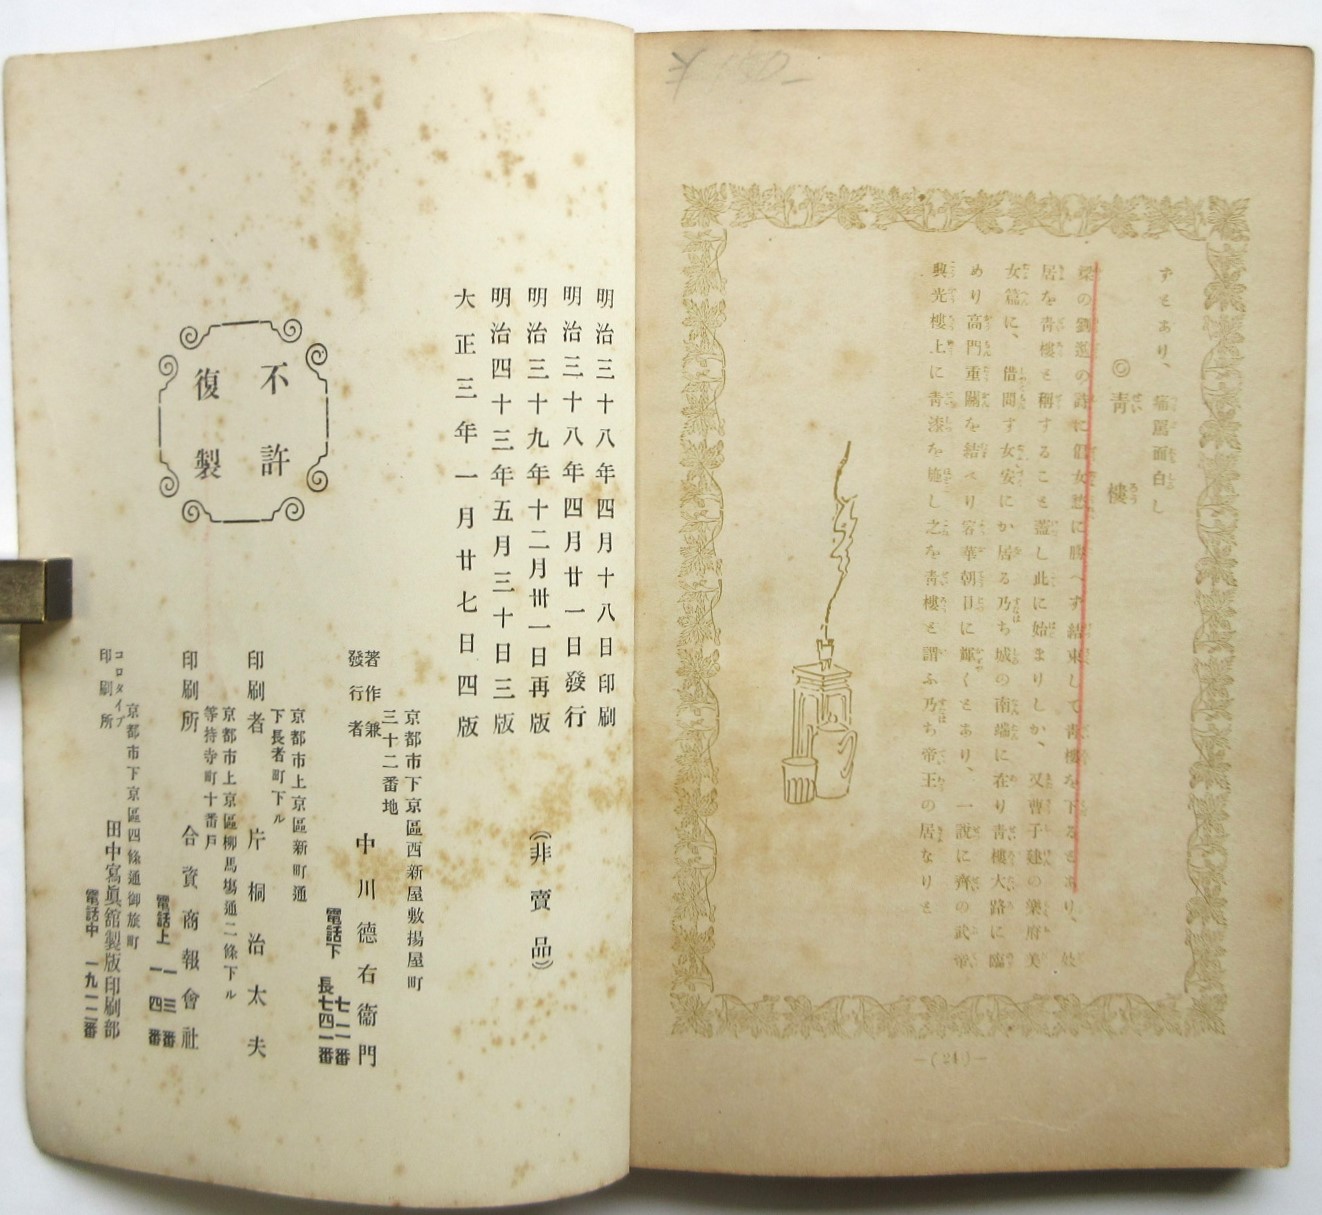 ずとあり、痛罵面白し
◎青樓
梁の劉邈の詩に倡女愁に勝へず結束して青樓を下るとあり、妓
居を青樓と稱すること蓋し此に始まりしか、又曹子建の樂府美
女篇に、借問す女安にか居る乃ち城の南端に在り青樓大路に臨
めり高門重關を結べり容華朝日に輝くとあり、一說に齊の武帝
興光樓上に青漆を施し之を青樓と謂ふ乃ち帝王の居なりと
—(24)—
明治三十八年四月十八日印刷
明治三十八年四月廿一日發行
明治三十九年十二月卅一日再版
明治四十三年五月三十日三版
大正三年一月廿七日四版
(非賣品)
京都市下京區西新屋敷揚屋町
三十二番地
著作兼
發行者
中川德右衞門
電話下
七一一番
長七四一番
京都市上京區新町通
下長者町下ル
印刷者
片桐治太夫
京都市上京區柳馬場通二條下ル
等持寺町十番戶
印刷所
合資商報會社
電話上
一一三番
一一四番
京都市下京區四條通御旅町
コロタイプ
印刷所
田中寫眞館製版印刷部
電話中 一九一二番
不許
復製